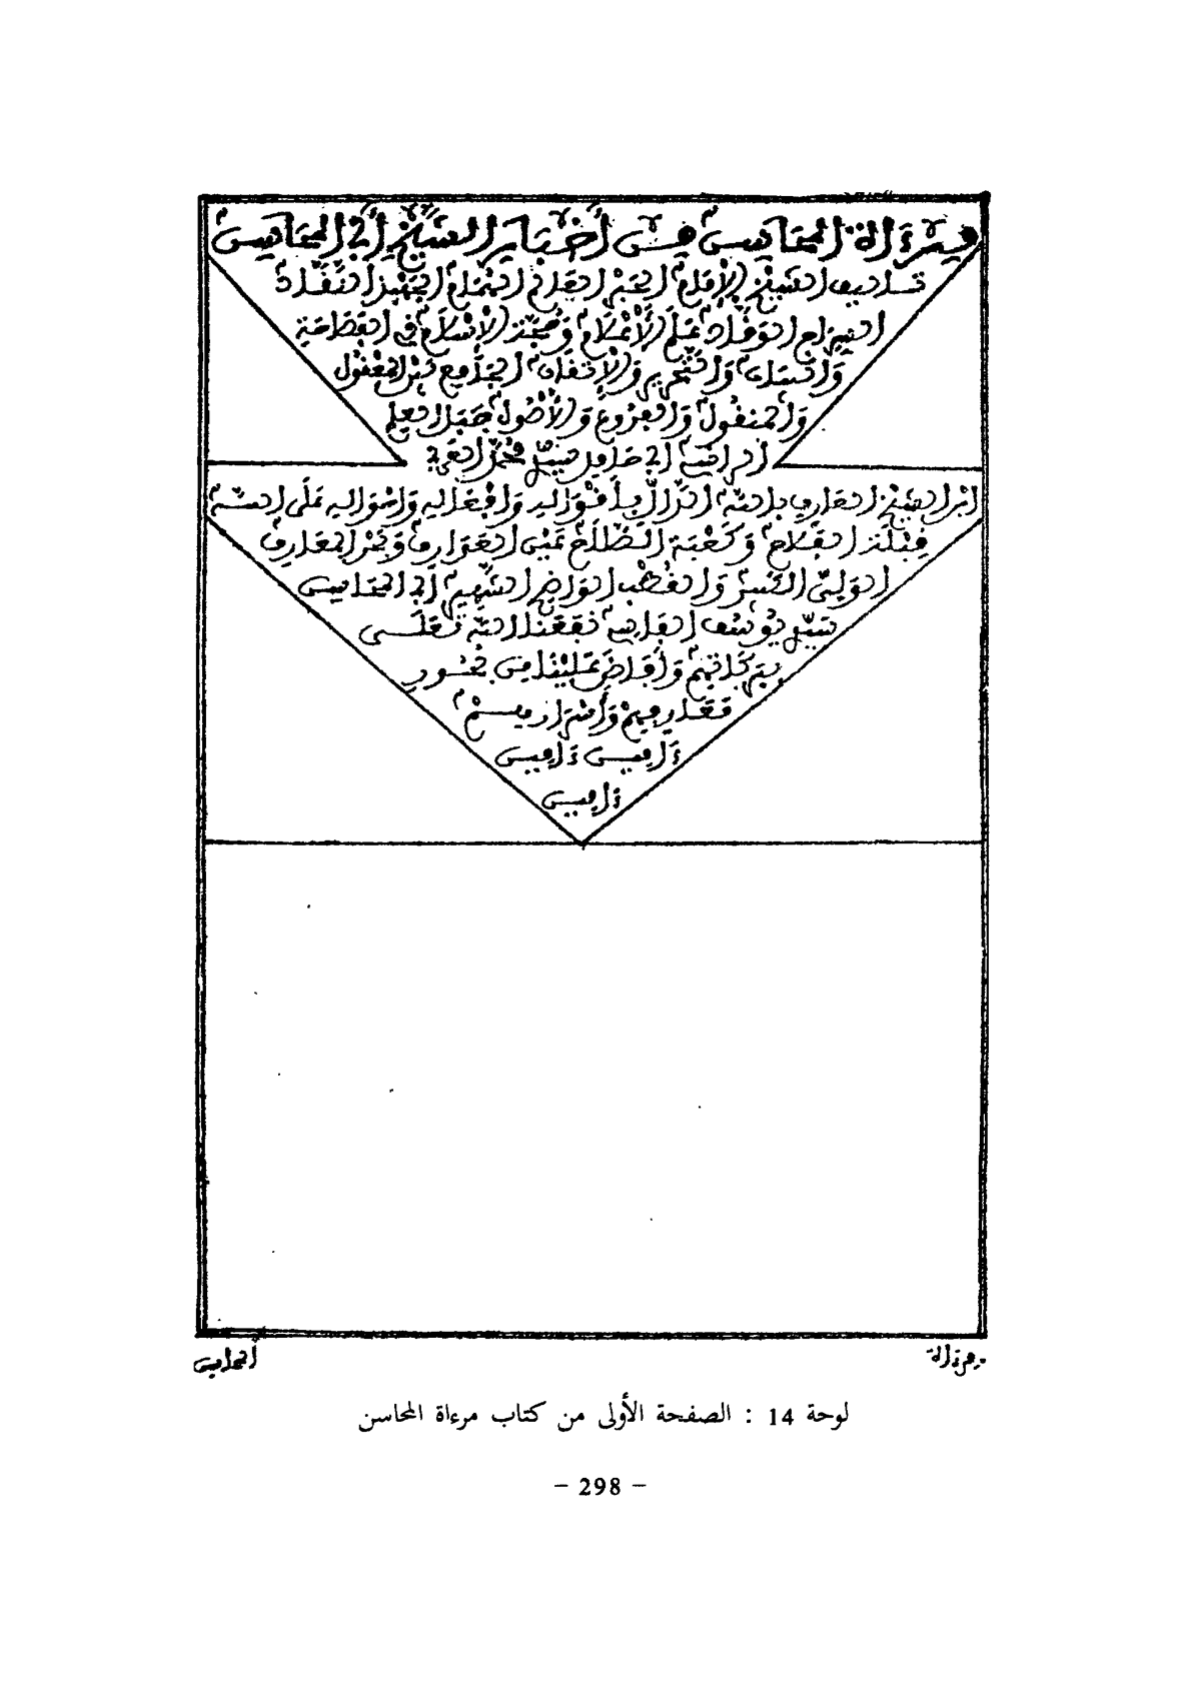 مرءاة المحاسن من أخبار الشيخ أبي المحاسن
تأليف الشيخ الإمام الحبر الهمام الجهبذ النقاد
السراج الوقاد علم الأعلام وحجة الإسلام في الفصاحة
والبيان والتحرير والإتقان الجامع بين المعقول
والمنقول والفروع والأصول جبل العلم
الراسي أبي حامد سيد محمد العربي
ابن الشيخ العارف بالله الدال بأقواله وأفعاله وأحواله على الله
قبلة الفلاح وكعبة الصلاح عين العوارف وبحر المعارف
الولي الكبير والقطب الواضح الشهير أبي المحاسن
سيد يوسف الفاسي نفعنا الله تعلى
ببركاتهم وأفاض علينا من بحور
معارفهم وأسرارهم
ءامين ءامين
ءامين
مرءاة
المحاسن
لوحة 14 : الصفحة الأولى من كتاب مرءاة المحاسن
– 298 –